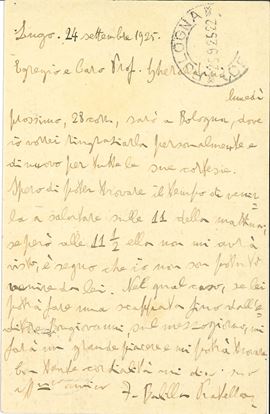 Lugo. 24 settembre 1925.
BOLOGNA
Egregio e Caro Prof.
lunedì
prossimo, 28 corr., sarò a Bologna, dove
io vorrei ringraziarla personalmente e
di nuovo per tutte le sue cortesie.
Spero di poter trovare il tempo di venir
la a salutare sulle 11 della mattina,
se però alle 11 1/2 ella non mi avrà
visto, è segno che io non son potuto
venire da lei. Nel qual caso, se lei
potrà fare una scappata fino dall'E
ditore Bongiovanni sul mezzogiorno, mi
farà un grande piacere e mi potrà trovare
là. Tante cordialità mi dica suo
aff.mo amico F. Balilla Pratella